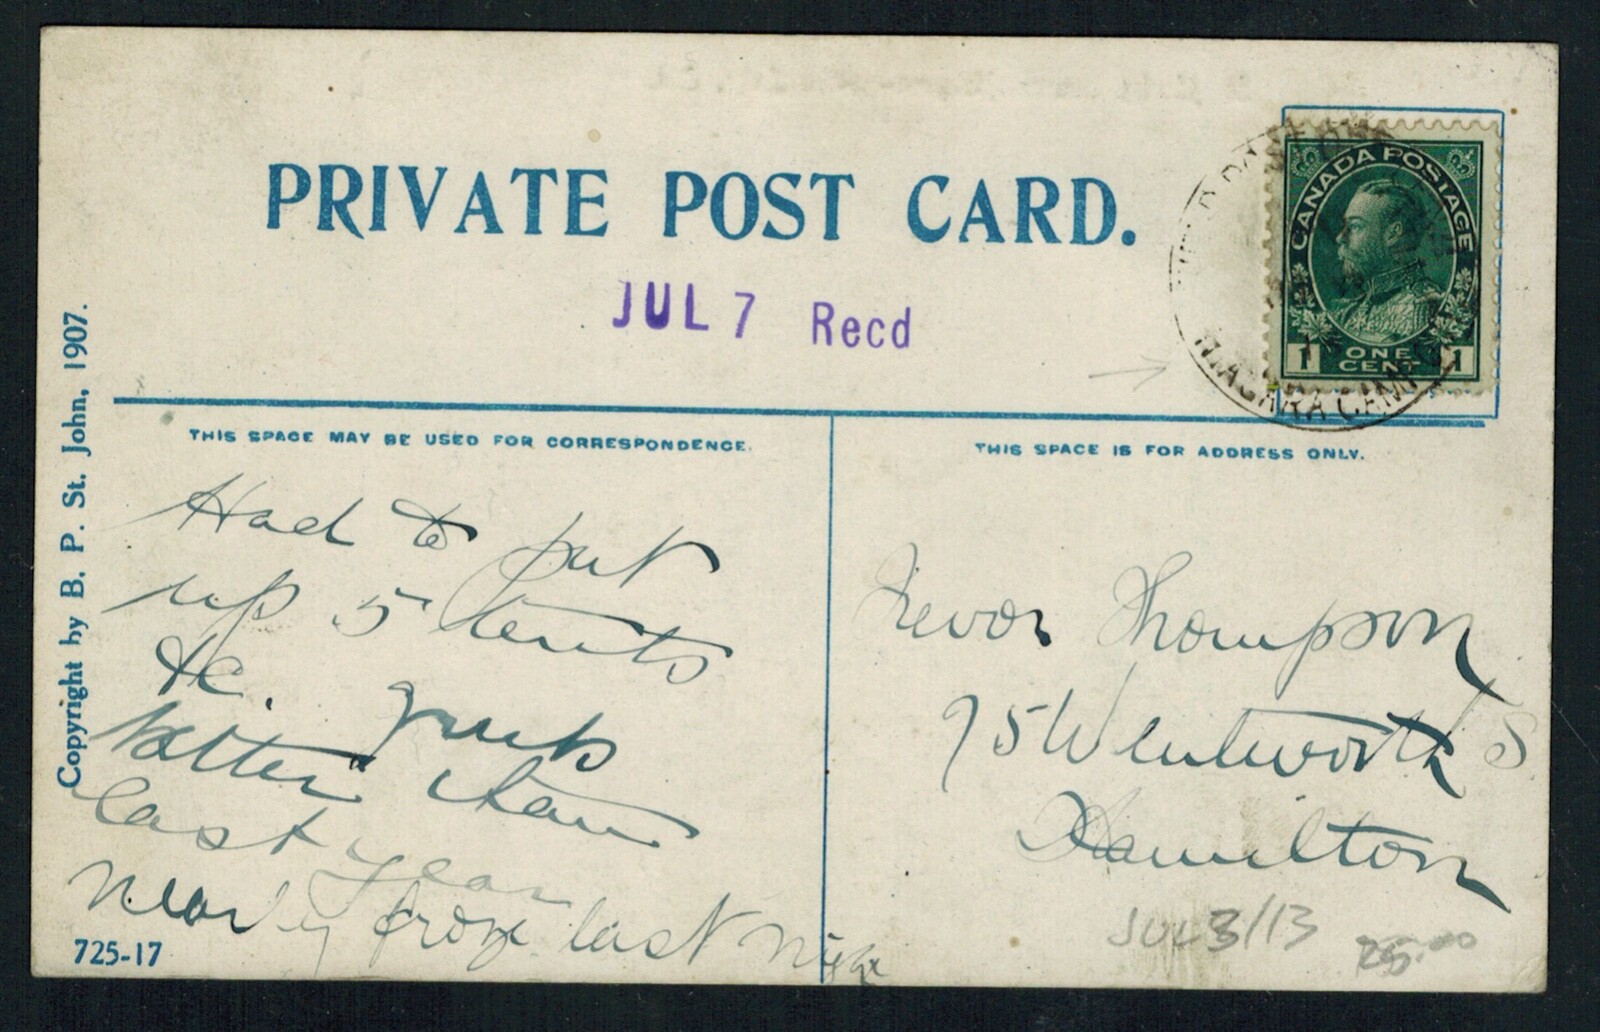 PRIVATE POST CARD.
JUL 7 Recd
CANADA POSTAGE
1 ONE CENT 1
NIAGARA CAMP
Copyright by B. P. St. John, 1907.
THIS SPACE MAY BE USED FOR CORRESPONDENCE.
Had to put
up 5 tents
&c. grub
better than
last year
Nearly froze last night
725-17
THIS SPACE IS FOR ADDRESS ONLY.
Trevor Thompson
75 Wentworth S
Hamilton
JUL 3/13
25.00